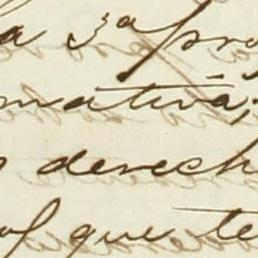 a 3ª pro
mativa,
derech
que te